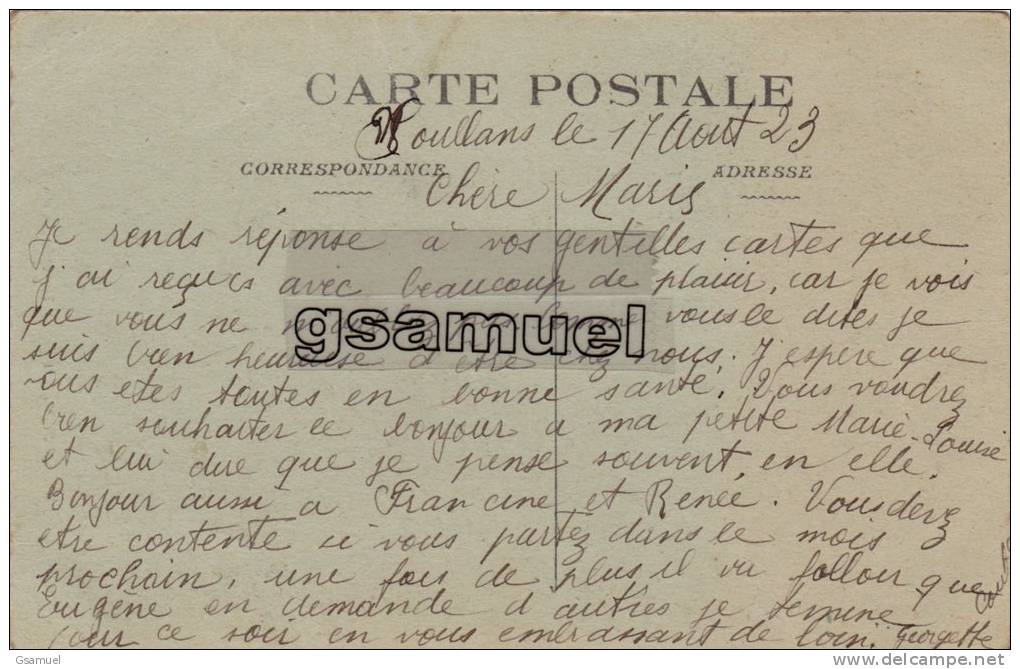 CARTE POSTALE
Noullans le 17 Aout 23
CORRESPONDANCE
ADRESSE
Chère Marie
Je rends réponse à vos gentilles cartes que
j ai reçues avec beaucoup de plaisir, car je vois
que vous ne pas comme vous le dites je
suis bien heureuse d etre chez nous. J espere que
vous etes toutes en bonne santé. Vous voudrez
bien souhaiter le bonjour a ma petite Marie-Louise
et lui dire que je pense souvent en elle.
Bonjour aussi a Francine et Renée. Vous devez
etre contente si vous partez dans le mois
prochain, une fois de plus il va falloir que
Eugène en demande d autres je termine
pour ce soir en vous embrassant de loin. Georgette
gsamuel
Gsamuel
delcampe.net